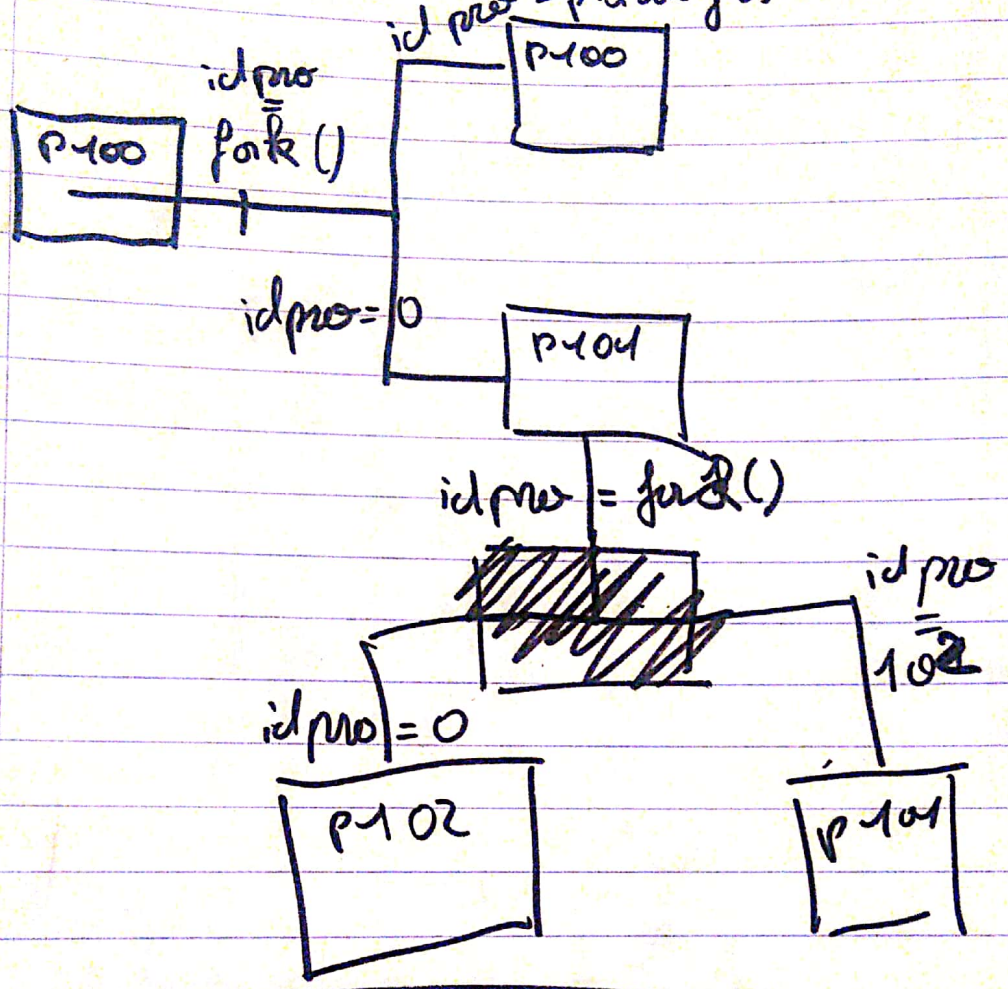 idpro
P100
idpro
=
fork()
P100
idpro=0
P101
idpro=fork()
idpro
=
102
idpro=0
P102
P101